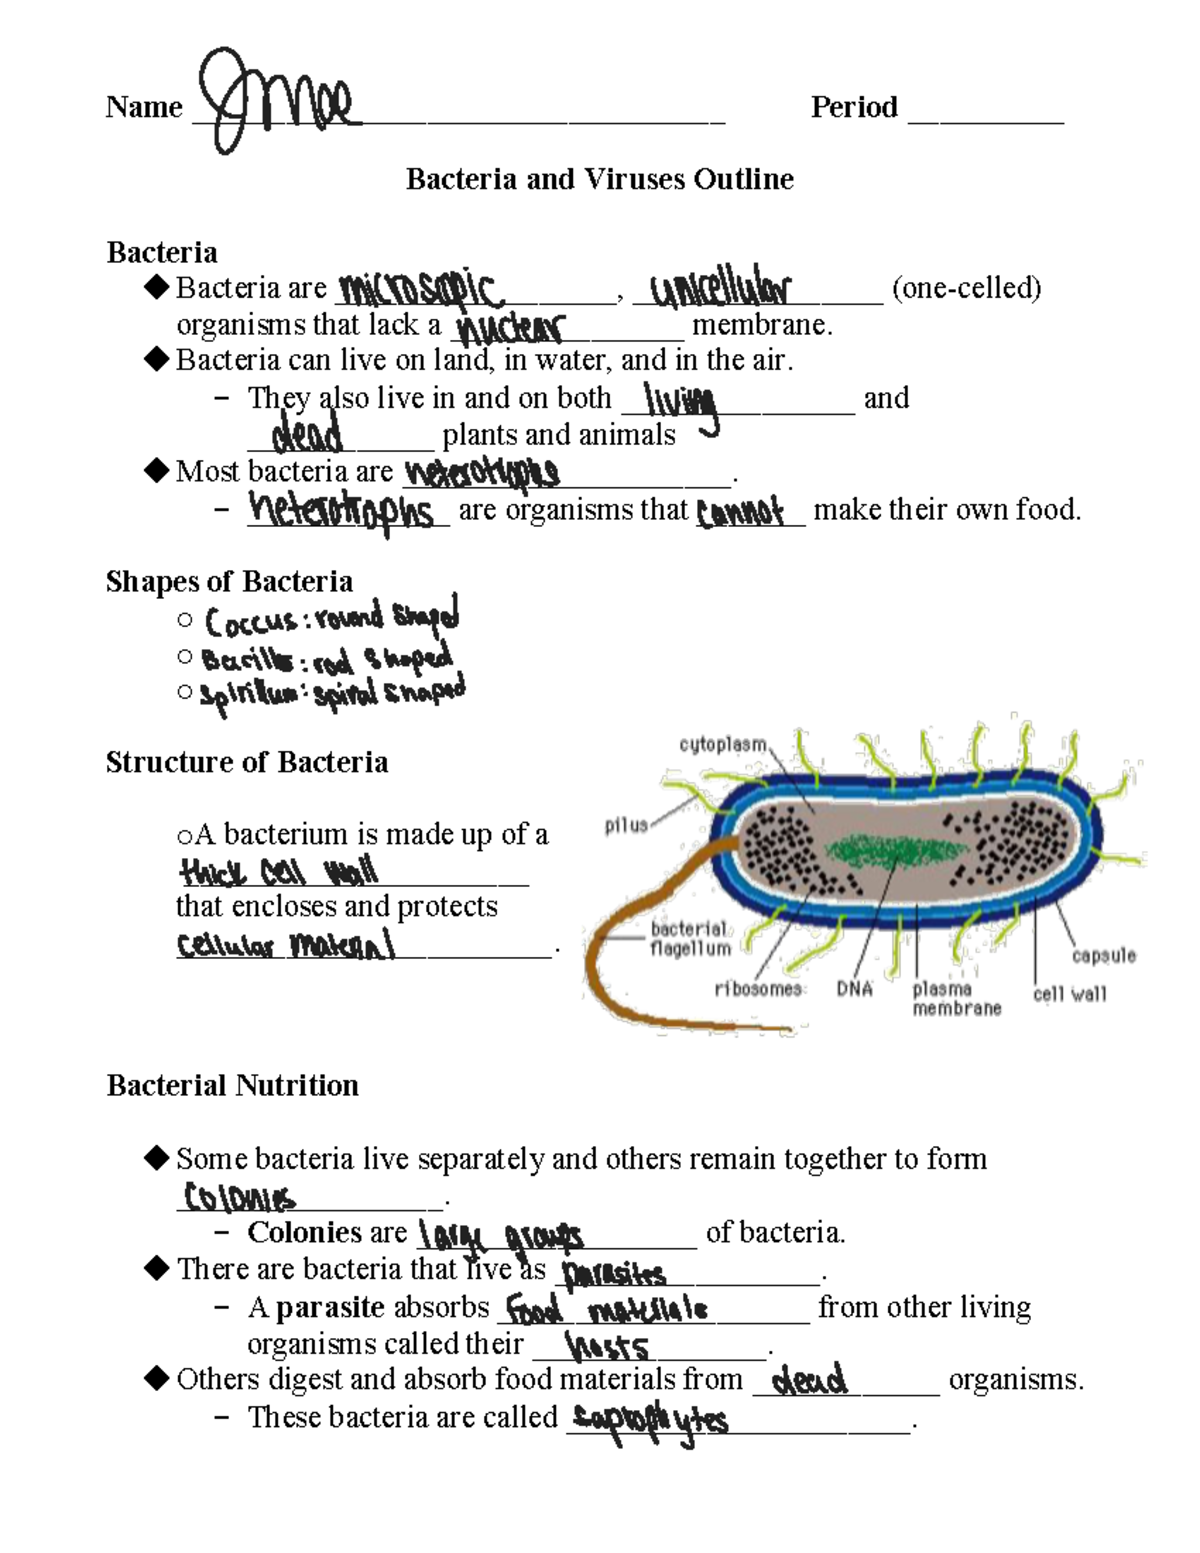 Name J Moe Period
Bacteria and Viruses Outline
Bacteria
◆ Bacteria are microsopic, unicellular (one-celled)
organisms that lack a nuclear membrane.
◆ Bacteria can live on land, in water, and in the air.
– They also live in and on both living and
dead plants and animals
◆ Most bacteria are heterotrophs.
– heterotrophs are organisms that cannot make their own food.
Shapes of Bacteria
○ Coccus: round shaped
○ Bacillus: rod shaped
○ Spirillum: spiral shaped
Structure of Bacteria
○A bacterium is made up of a
thick cell wall
that encloses and protects
cellular material.
cytoplasm
pilus
bacterial
flagellum
ribosomes
DNA
plasma
membrane
cell wall
capsule
Bacterial Nutrition
◆ Some bacteria live separately and others remain together to form
colonies.
– Colonies are large groups of bacteria.
◆ There are bacteria that live as parasites.
– A parasite absorbs food materials from other living
organisms called their hosts.
◆ Others digest and absorb food materials from dead organisms.
– These bacteria are called saprophytes.